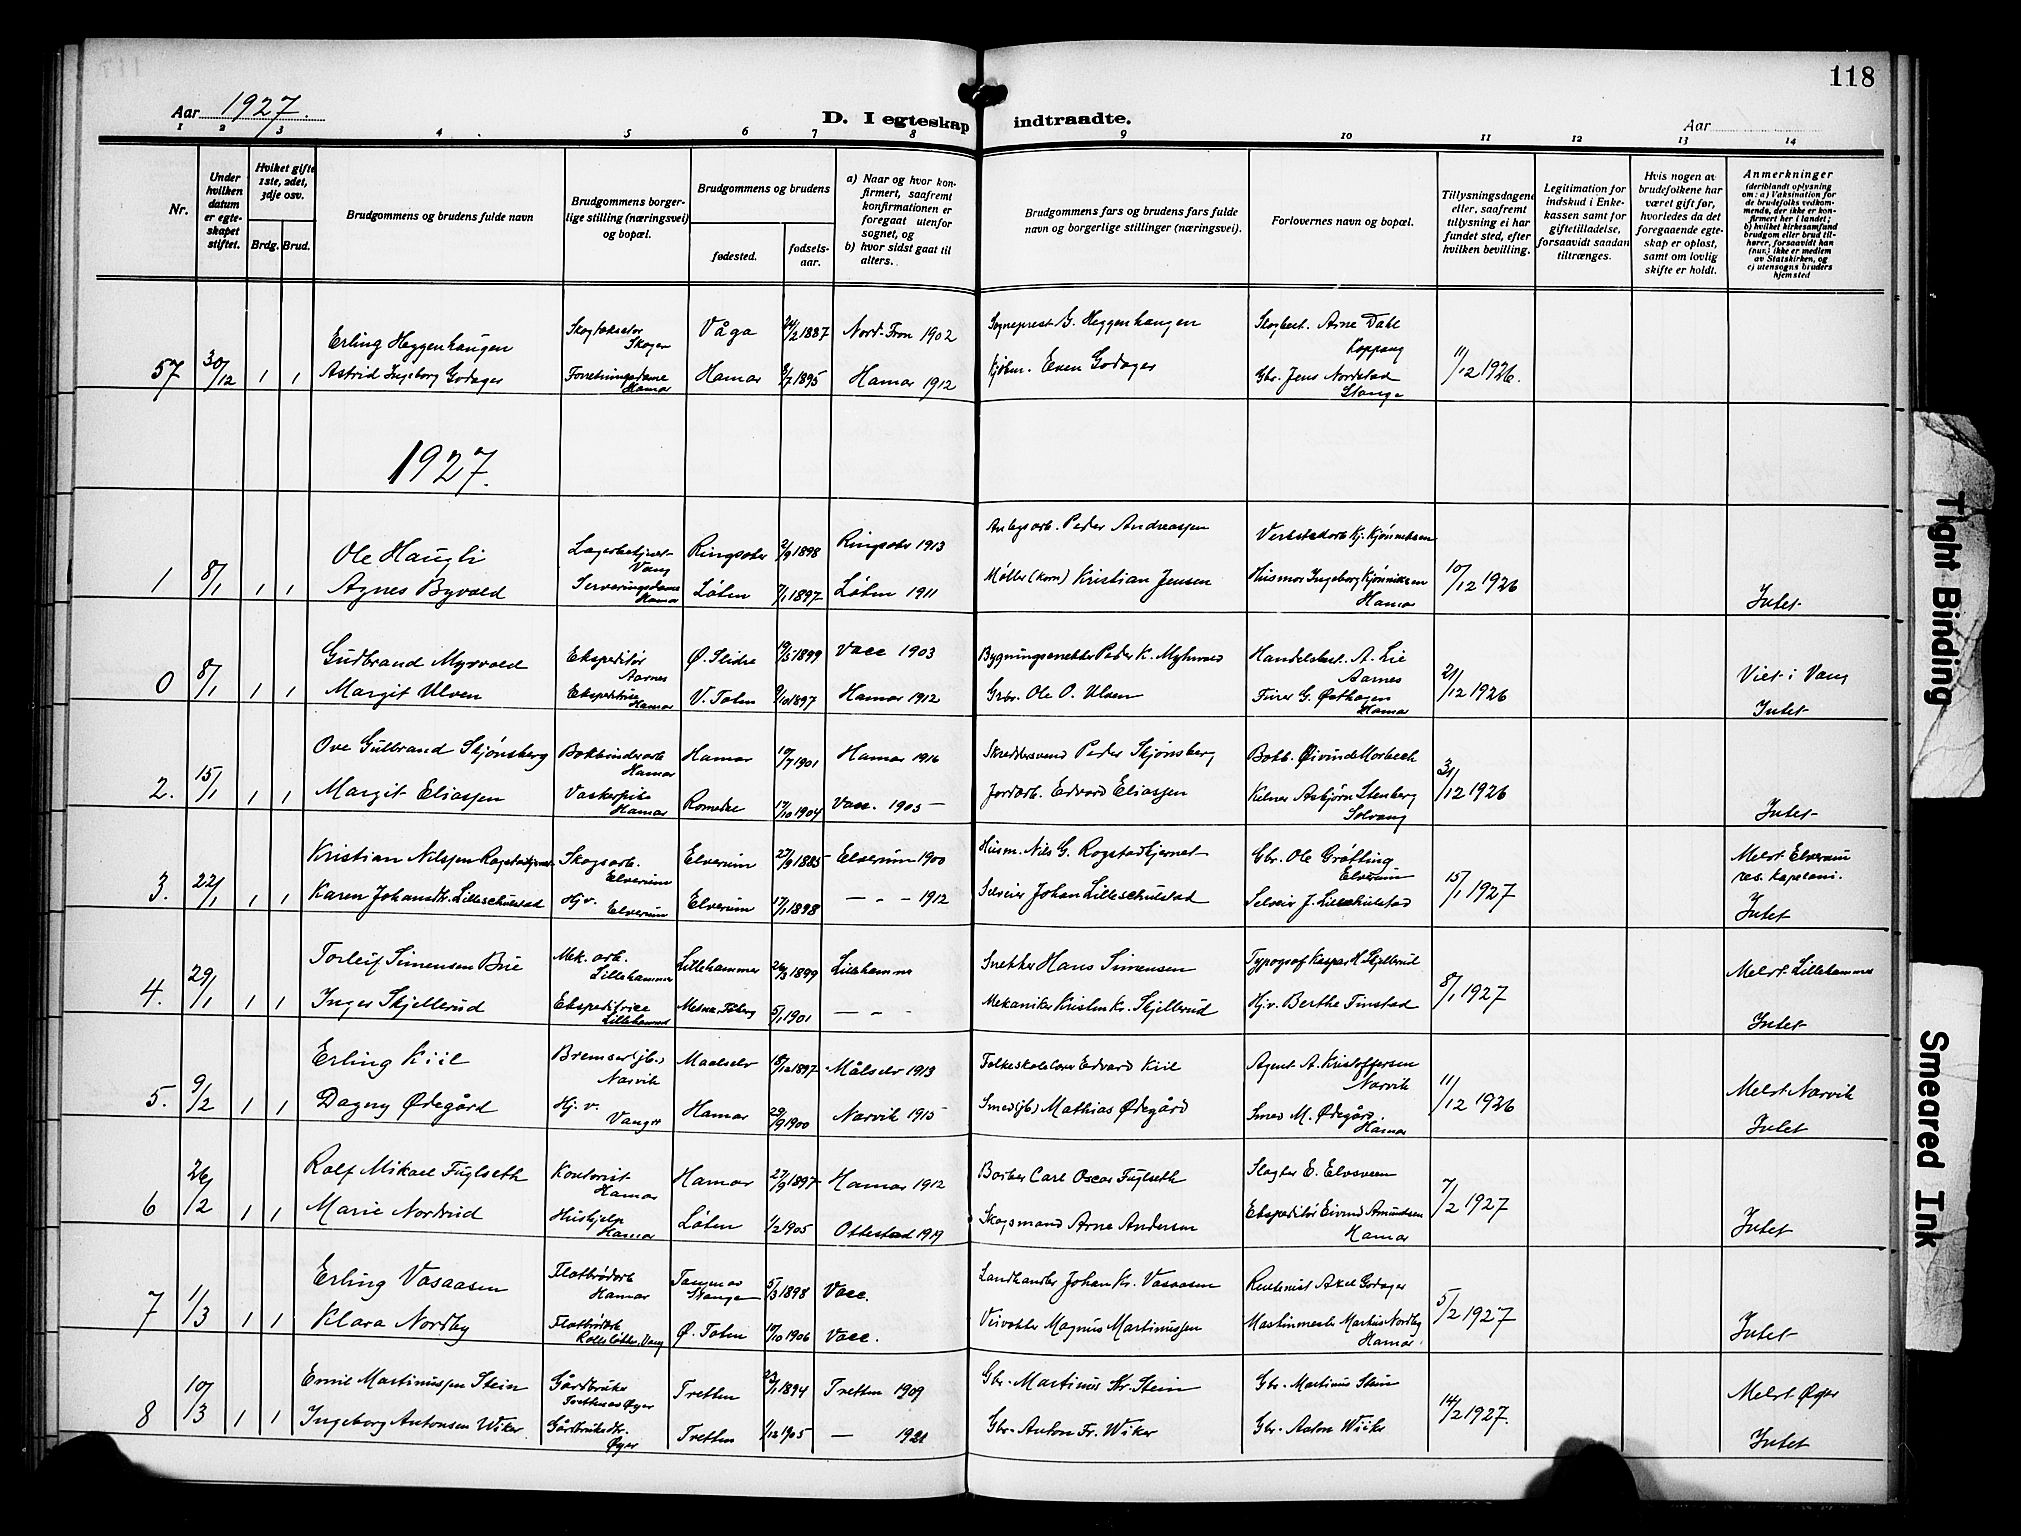 118
Aar 1927.
D. I egteskap indtraadte.
Aar
1 2 3 4 5 6 7 8 9 10 11 12 13 14
Nr.
Under hvilken datum er egteskapet stiftet.
Hvilket gifte 1ste, 2det, 3dje osv.
Brdg. Brud.
Brudgommens og brudens fulde navn
Brudgommens borgerlige stilling (næringsvei) og bopæl.
Brudgommens og brudens
fødested.
fødselsaar.
a) Naar og hvor konfirmert, saafremt konfirmationen er foregaat utenfor sognet, og
b) hvor sidst gaat til alters.
Brudgommens fars og brudens fars fulde navn og borgerlige stillinger (næringsvei).
Forlovernes navn og bopæl.
Tillysningsdagene eller, saafremt tillysning ei har fundet sted, efter hvilken bevilling.
Legitimation for indskud i Enkekassen samt for giftetilladelse, forsaavidt saadan tiltrænges.
Hvis nogen av brudefolkene har været gift før, hvorledes da det foregaaende egteskap er opløst, samt om lovlig skifte er holdt.
Anmerkninger
(deriblandt oplysning om: a) Vaksination for de brudefolks vedkommende, der ikke er konfirmert her i landet; b) hvilket kirkesamfund brudgom eller brud tilhører, forsaavidt han (hun) ikke er medlem av Statskirken, og c) utensogns bruders hjemsted
Erling Heggenhaugen Skogtakstor Skoger Våga 24/2 1887 Nord-Fron 1902 Sogneprest G. Heggenhaugen Skogbest. Arne Dahl Koppang
57 30/12 1 1 Astrid Ingeborg Godager Forretningsdame Hamar Hamar 9/7 1895 Hamar 1912 Kjøbm. Even Godager Gbr. Jens Nordstad Stange 11/12 1926.
1927.
Ole Haugli Lagerbetjent Vang Ringsaker 2/9 1898 Ringsaker 1913 Anlegsarb. Peder Andreassen Verkstedarb. Kj. Kjønniksen
1 8/1 1 1 Agnes Byvold Serveringsdame Hamar Løten 7/1 1897 Løten 1911 Møller (korn) Kristian Jensen Husmor Ingeborg Kjønniksen Hamar 10/12 1926 Intet
Gudbrand Myrvold Ekspeditør Aarnes Ø. Slidre 19/5 1899 Vacc 1903 Bygningssnekker Peder K. Myhrvold Handelsbest. A. Lie Aarnes Viet i Vang
0 8/1 1 1 Margit Ulven Ekspeditrise Hamar V. Toten 9/10 1897 Hamar 1912 Grbr. Ole O. Ulven Firer G. Østhagen Hamar 21/12 1926 Intet
Ove Gulbrand Skjønsberg Bokbinderarb. Hamar Hamar 19/7 1901 Hamar 1916 Skreddersvend Peder Skjønsberg Bokb. Øivind Morbech
2. 15/1 1 1 Margit Eliassen Vaskerpike Hamar Romedal 17/10 1904 Vacc. 1905 Jordarb. Edvard Eliassen Kelner Asbjørn Stenberg Solvang 31/12 1926 Intet
Kristian Nilssen Rogstadkjernet Skogsarb. Elverum Elverum 27/9 1885 Elverum 1900 Husm. Nils G. Rogstadkjernet Gbr. Ole Grøtting Elverum Melst. Elverum res. kapelani.
3. 22/1 1 1 Karen Johansdtr. Lilleschulstad Hj.v. Elverum Elverum 17/1 1898 — " — 1912 Selveier Johan Lilleschulstad Selveier J. Lilleschulstad 15/1 1927 Intet
Torleif Simensen Bue Mek. arb. Lillehammer Lillehammer 26/3 1899 Lillehammer Snekker Hans Simensen Typograf Kaspar H Skjellerud Melst. Lillehammer
4. 29/1 1 1 Inger Skjellerud Ekspeditrice Lillehammer Mesna, Fåberg 5/1 1901 — " — Mekaniker Kristin Kr. Skjellerud Hj.v. Berthe Finstad 8/1 1927 Intet
Erling Kiil Bremser (jb.) Narvik Maalselv 18/12 1897 Målselv 1913 Folkeskolelærer Edvard Kiil Agent A. Kristoffersen Narvik Melst. Narvik
5. 9/2 1 1 Dagny Ødegård Hj. v. Vanger Hamar 29/9 1900 Narvik 1915 Smed (jb) Mathias Ødegård Smed M. Ødegård. Hamar 11/12 1926 Intet
Rolf Mikael Fuglseth Kontorist Hamar Hamar 27/9 1897 Hamar 1912 Barber Carl Oscar Fuglseth Slagter E. Elvsveen
6 26/2 1 1 Marie Nordrud Hushjelp Hamar Løten 1/2 1905 Ottestad 1919 Skogsmand Arne Andersen Ekspeditør Eivind Amundsen Hamar 7/2 1927 Intet
Erling Vasaasen Flatbrødarb. Hamar Tangen Stange 5/3 1898 Vacc. Landhandler Johan Kr. Vasaasen Rentenist Axel Godager
7 1/3 1 1 Klara Nordby Flatbrødarb. Vang Ø. Toten 19/10 1906 Vacc. Veivokter Magnus Martinussen Maskinmester Markus Nordby Hamar 5/2 1927 Intet
Emil Martinussen Stein Gårdbruker Øyer Tretten 23/1 1894 Tretten 1909 Gbr. Martinus Kr. Stein Gbr. Martinus Stein Melst. Øyer
8 10/3 1 1 Ingeborg Antonsen Wiker Gårdbrukerdtr. Øyer Tretten 1/12 1905 — 1921 Gbr. Anton Fr. Wiker Gbr. Anton Wiker 14/2 1927. Intet
Tight Binding
Smeared Ink